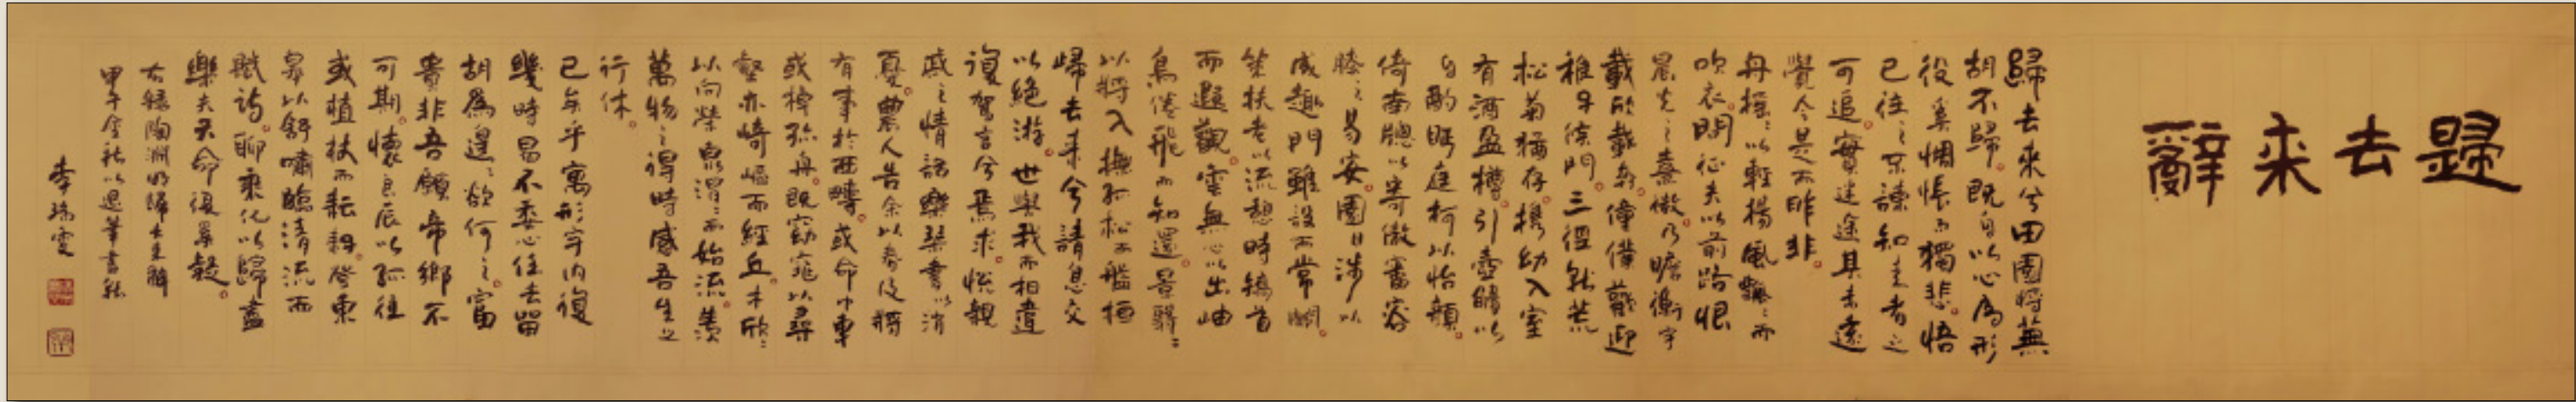 歸去来辭
歸去來兮田園將蕪
胡不歸既自以心為形
役奚惆悵而獨悲悟
已往之不諫知来者之
可追實迷途其未遠
覺今是而昨非
舟搖〻以輕揚風飄〻而
吹衣問征夫以前路恨
晨光之熹微乃瞻衡宇
載欣載奔僮僕歡迎
稚子候門三徑就荒
松菊猶存攜幼入室
有酒盈樽引壺觴以
自酌眄庭柯以怡顏
倚南牕以寄傲審容
膝之易安園日涉以
成趣門雖設而常關
策扶老以流憩時矯首
而遐觀雲無心以出岫
鳥倦飛而知還景翳〻
以將入撫孤松而盤桓
歸去来兮請息交
以絕游世與我而相遺
復駕言兮焉求悅親
戚之情話樂琴書以消
憂農人告余以春及將
有事於西疇或命巾車
或棹孤舟既窈窕以尋
壑亦崎嶇而經丘木欣〻
以向榮泉涓〻而始流羨
萬物之得時感吾生之
行休
已矣乎寓形宇内復
幾時曷不委心任去留
胡為遑〻欲何之富
貴非吾願帝鄉不
可期懷良辰以孤往
或植杖而耘耔登東
皋以舒嘯臨清流而
賦詩聊乘化以歸盡
樂夫天命復奚疑
右錄陶淵明歸去来辭
甲午金秋以退筆書於
李瑞雲